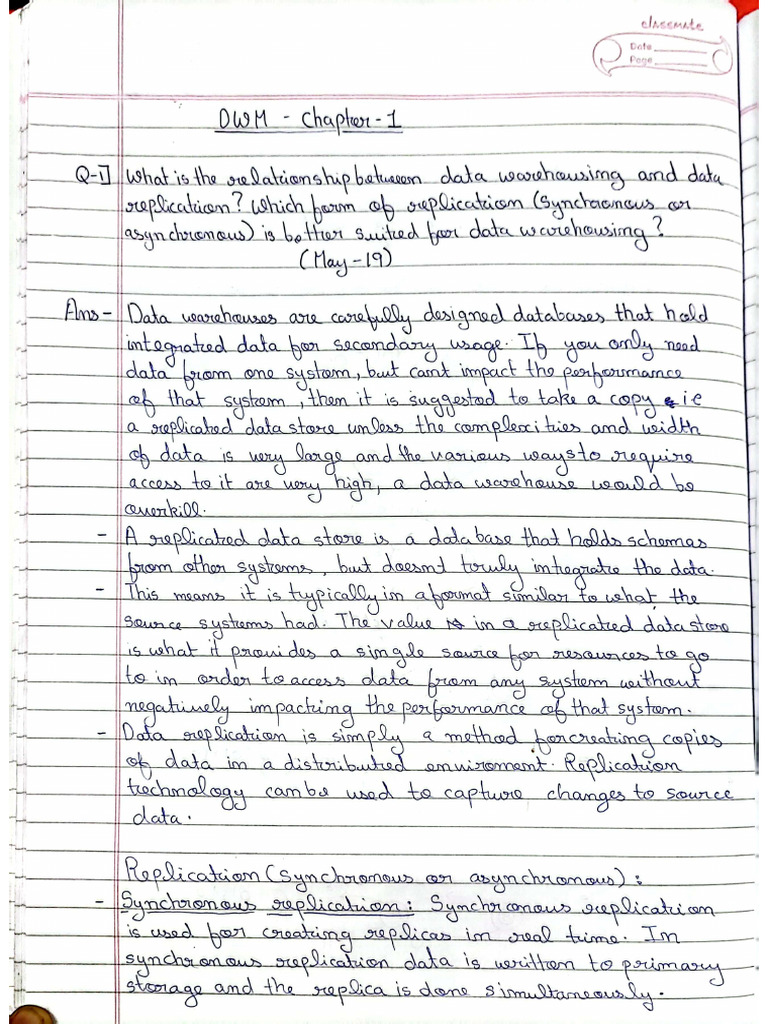 classmate
Date
Page
DWM - Chapter-1
Q-1] What is the relationship between data warehousing and data
replication? Which form of replication (Synchronous or
asynchronous) is better suited for data warehousing?
(May-19)
Ans - Data warehouses are carefully designed databases that hold
integrated data for secondary usage. If you only need
data from one system, but cant impact the performance
of that system, then it is suggested to take a copy ie
a replicated data store unless the complexities and width
of data is very large and the various ways to require
access to it are very high, a data warehouse would be
overkill.
- A replicated data store is a database that holds schemas
from other systems, but doesnt truly integrate the data.
- This means it is typically in a format similar to what the
source systems had. The value in a replicated data store
is what it provides a single source for resources to go
to in order to access data from any system without
negatively impacting the performance of that system.
- Data replication is simply a method for creating copies
of data in a distributed enviroment. Replication
technology can be used to capture changes to source
data.
Replication (Synchronous or asynchronous) :
- Synchronous replication : Synchronous replication
is used for creating replicas in real time. In
synchronous replication data is written to primary
storage and the replica is done simultaneously.